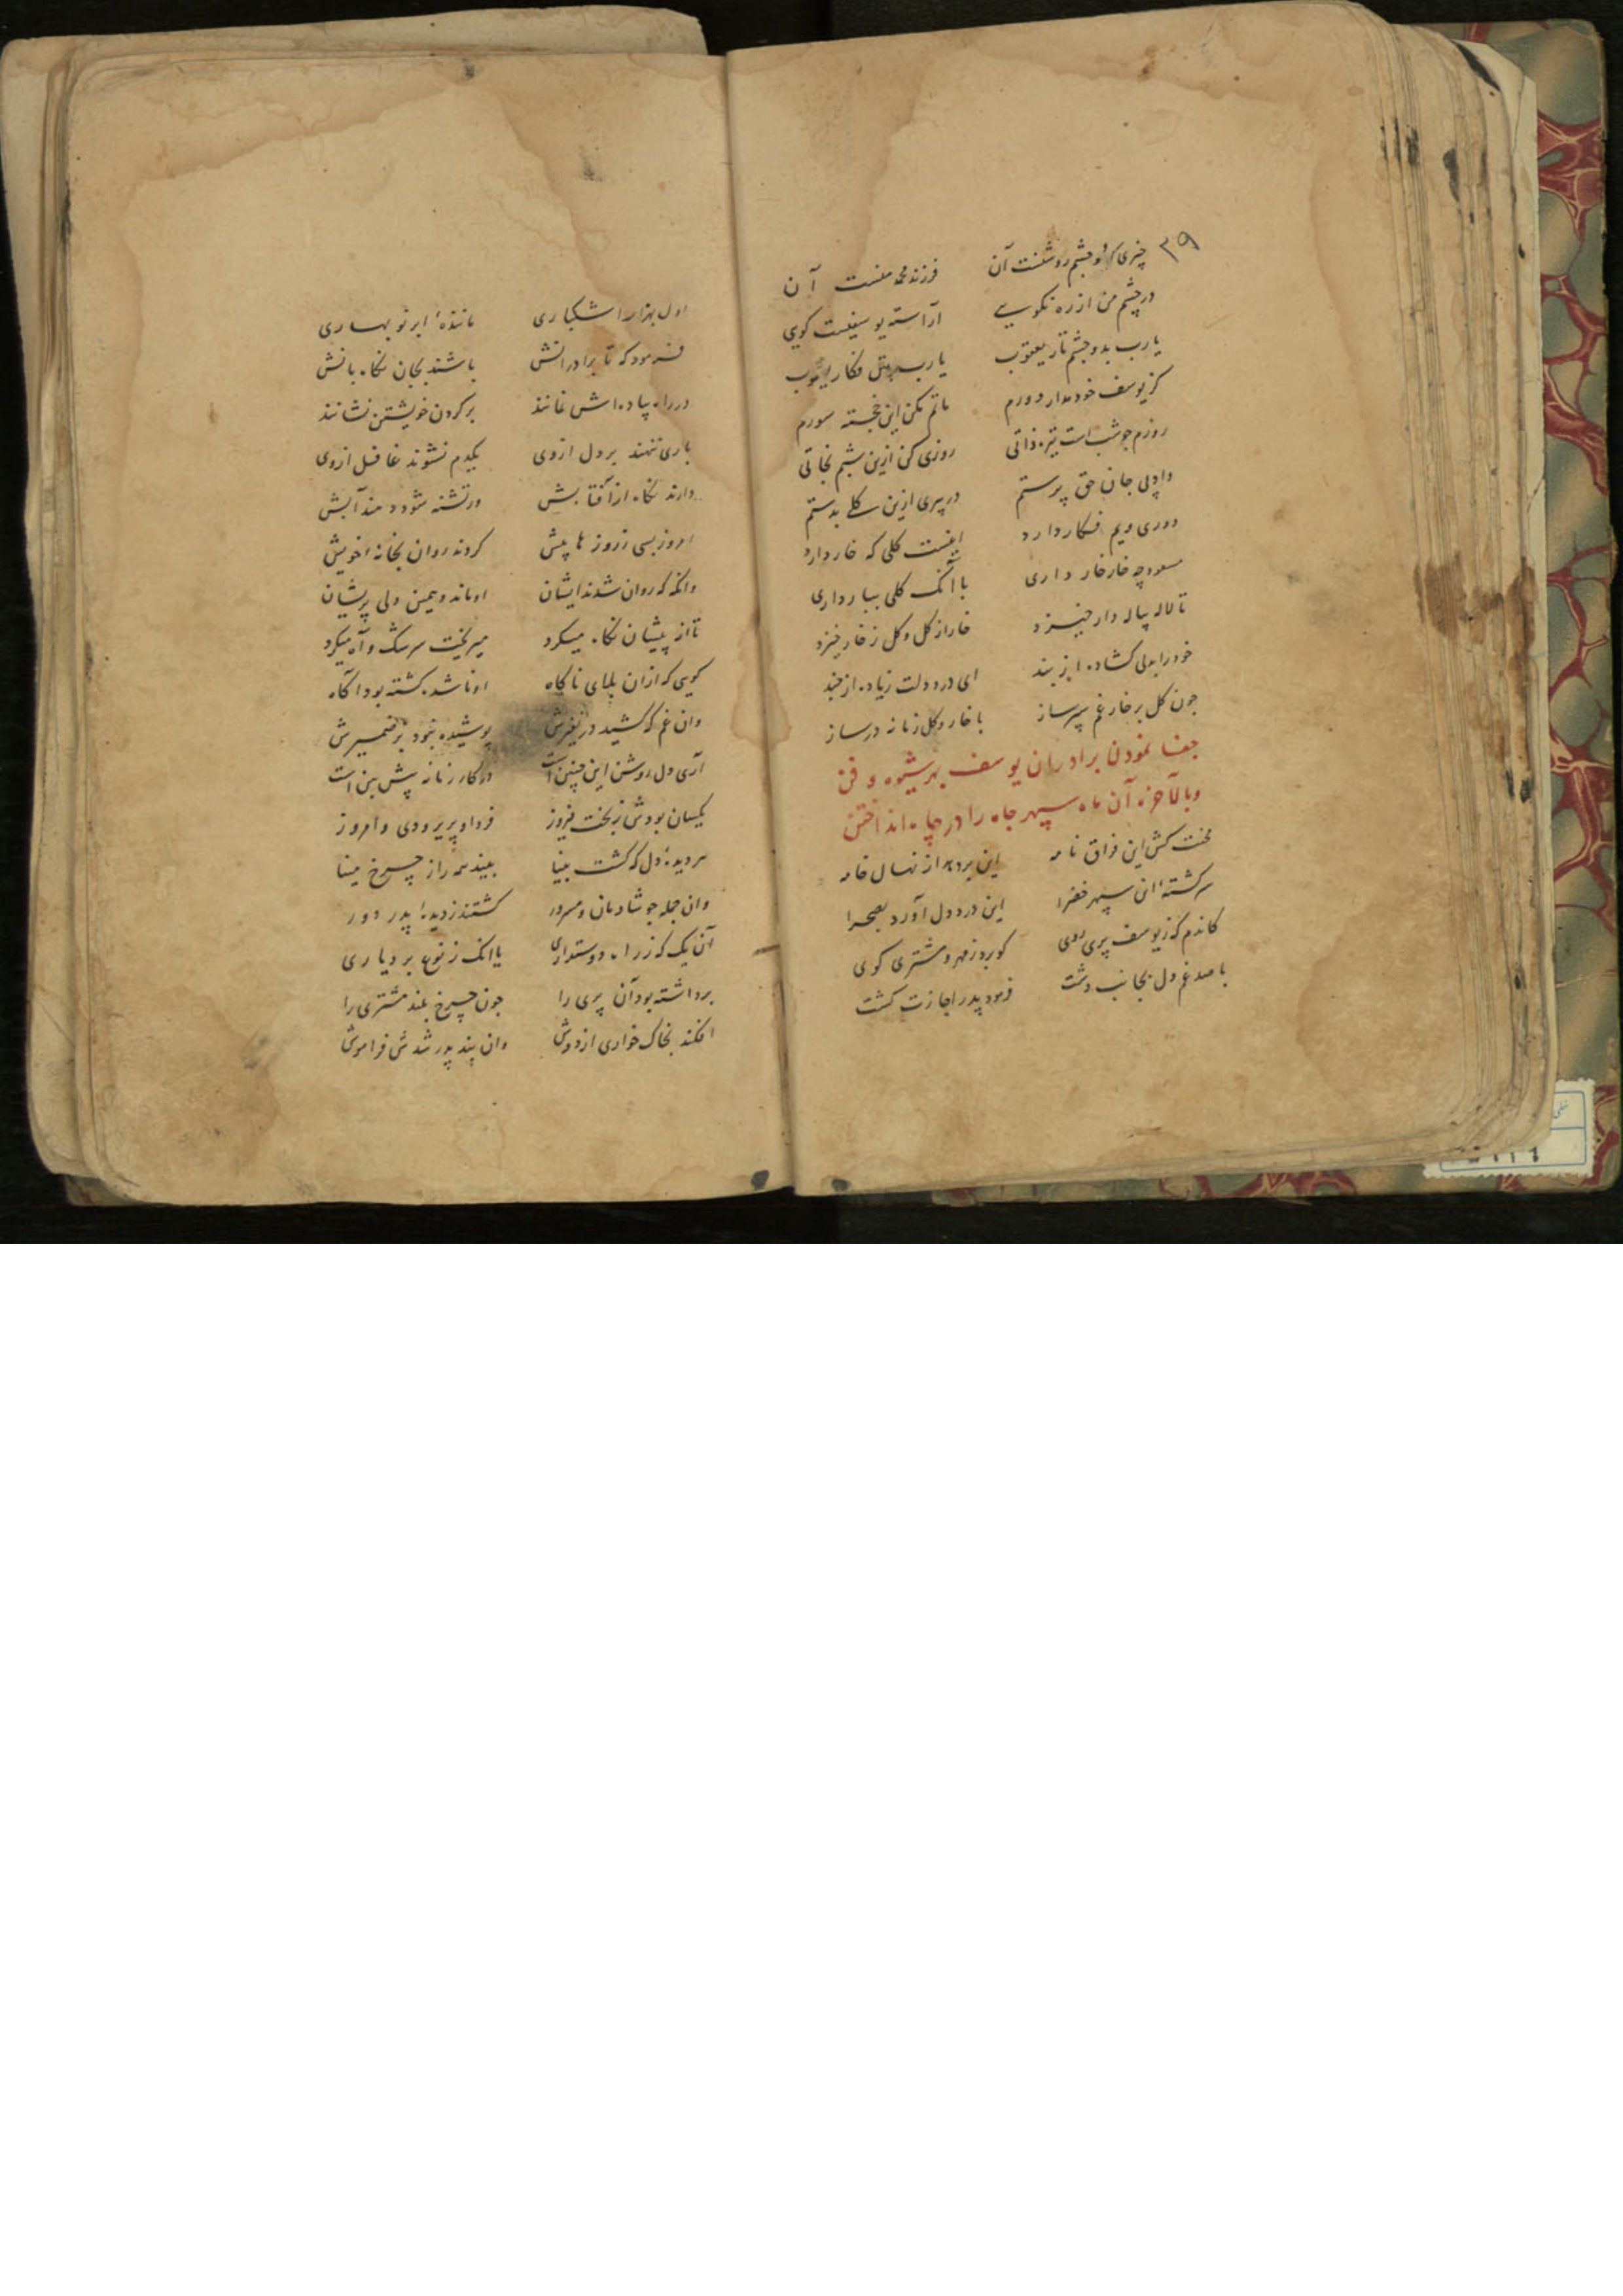 ۳۹
چیزی کزو چشم روشنست آن فرزند محمد منست آن
در چشم من از ره نکویی آراسته یوسفیست کویی
یارب بدو چشم تار یعقوب یارب فکار
کز یوسف خود مدار دورم ماتم مکن این خجسته سورم
روزم چو شب است تیره ذاتی روزی کن ازین شبم نجاتی
دادی جان حق پرستم در پیری ازین گلی بدستم
دوری ویم فکار دارد اینست کلی که خار دارد
مسعود چه خار خار داری با آنک کلی ببار داری
تا لاله پیاله دار خیزد خار از کل و کل ز خار خیزد
خود را بدلی کشاده از بند ای درد دلت زیاده از چند
چون کل بر خار غم سپر ساز با خار و کل زمانه در ساز
جفا نمودن برادران یوسف بهر شیوه و فن
وبالآخره آن ماه سپهر جاه را در چاه انداختن
محنت کش این فراق نامه این بر دهد از نهال خامه
سرکشته این سپهر خضرا این درد دل آورد بصحرا
کاندم که ز یوسف پری روی کو برد ز مهر و مشتری کوی
با صد غم دل بجانب دشت فرمود پدر اجازت کشت
اول بهزار اشکباری ماننده ابر نو بهاری
فرمود که تا برادرانش باشند بجان نکاه بانش
در راه پیاده اش نمانند بر کردن خویشتن نشانند
باری ننهند بر دل ازوی یکدم نشوند غافل ازوی
دارند نکاه از آفتابش ور تشنه شود دهند آبش
امروز بسی ز روزها پیش کردند روان بخانه خویش
وانکه که روان شدند ایشان او ماند و همین دلی پریشان
تا از پیشان نکاه میکرد میریخت سرشک و آه میکرد
کویی که ازان بلای ناکاه او ناشده کشته بود آکاه
وان غم که کشید در نفیرش پوشیده نبود بر ضمیرش
آری دل روشن این چنین است در کار زمانه پیش بین است
یکسان بودش ز بخت فیروز فردا و پریر و دی و امروز
هر دیده دل که کشت بینا بیند همه راز چرخ مینا
وان جمله چو شادمان و مسرور کشتند ز دیده پدر دور
آن یک که ز راه دوستداری یا انک ز بردباری
برداشته بود آن پری را چون چرخ بلند مشتری را
افکند بخاک خواری از دوش وان پند پدر شدش فراموش